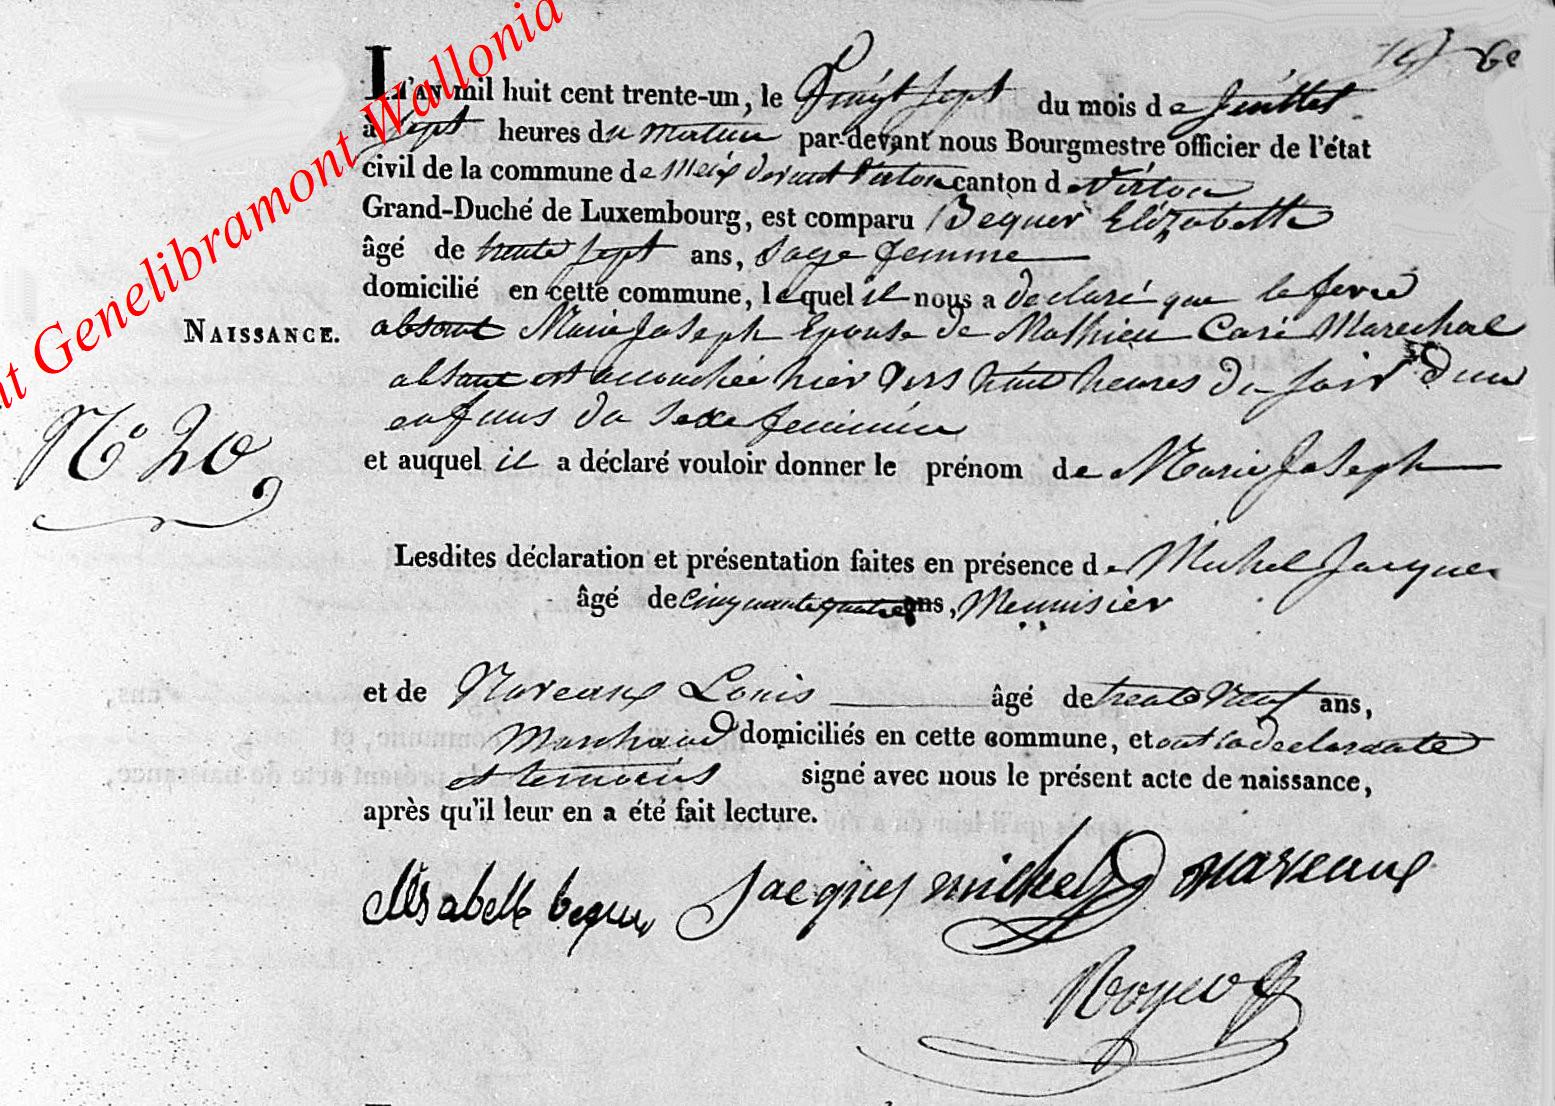 L'AN mil huit cent trente-un, le Vingt sept du mois de Juillet
à sept heures du matin par-devant nous Bourgmestre officier de l'état
civil de la commune de Meix devant Virton canton de Virton
Grand-Duché de Luxembourg, est comparu Bequer Elizabette
âgé de trente sept ans, sage femme
domicilié en cette commune, lequel il nous a declaré que
NAISSANCE. absent Marie Joseph Epouse de Mathieu Caré Marechal
absent est accouchée hier vers huit heures du soir d'un
enfans du sexe feminin
N° 20
et auquel il a déclaré vouloir donner le prénom de Marie Joseph
Lesdites déclaration et présentation faites en présence de Michel Jacques
âgé de cinquante quatre ans, Mennisier
et de Naveaux Louis âgé de trente neuf ans,
Marchand domiciliés en cette commune, et ont la declarante
et temoins signé avec nous le présent acte de naissance,
après qu'il leur en a été fait lecture.
Elisabette bequer Jacques michel naveaux
nt Genelibramont Wallonia